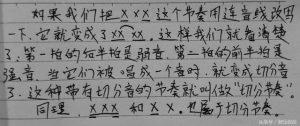 如果我们把 X X X 这个节奏用连音线改写
一下,它就变成了 X X X X。这样我们就看清楚
了,第一拍的后半拍是弱音,第二拍的前半拍是
强音,当它们被唱成一个音时,就变成切分音
了。这种带有切分音的节奏就叫做"切分节奏"。
同理,X X X 和 X X · 也属于切分节奏。